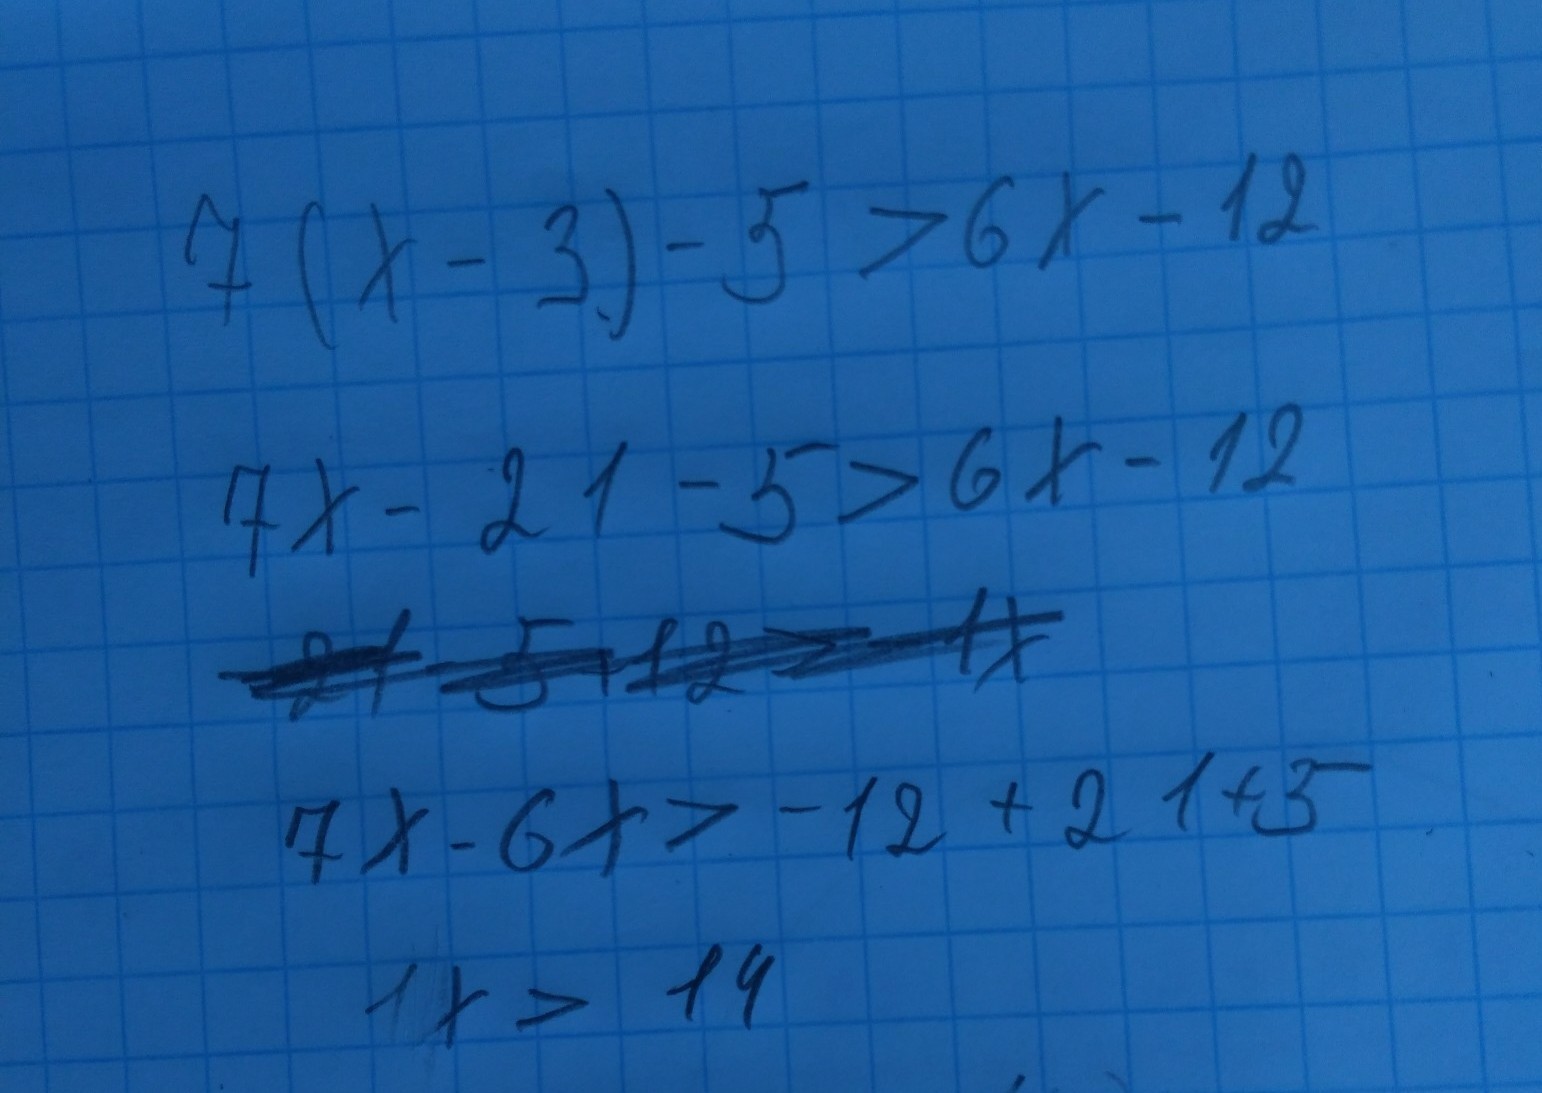 7(x - 3) - 5 > 6x - 12
7x - 21 - 5 > 6x - 12
21 - 5 + 12 > - 1x
7x - 6x > -12 + 21 + 5
1x > 14